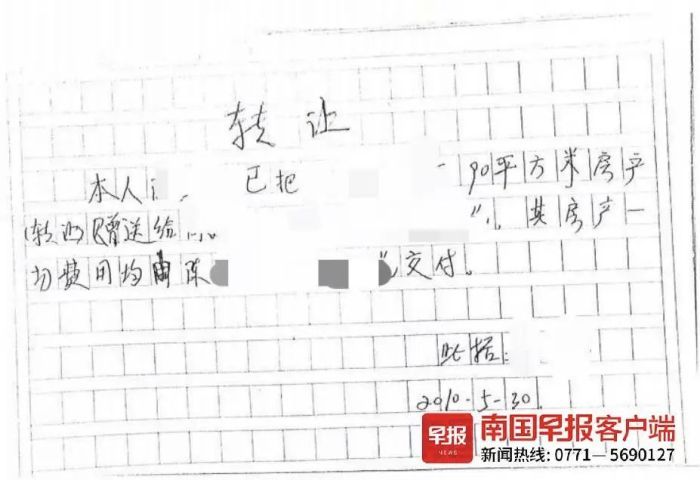 转让
本人 已把 90平方米房产
(转让)赠送给 其房产一
切费用均由陈 交付。
此据:
2010-5-30.
早报
NEWS
南国早报客户端
新闻热线: 0771—5690127